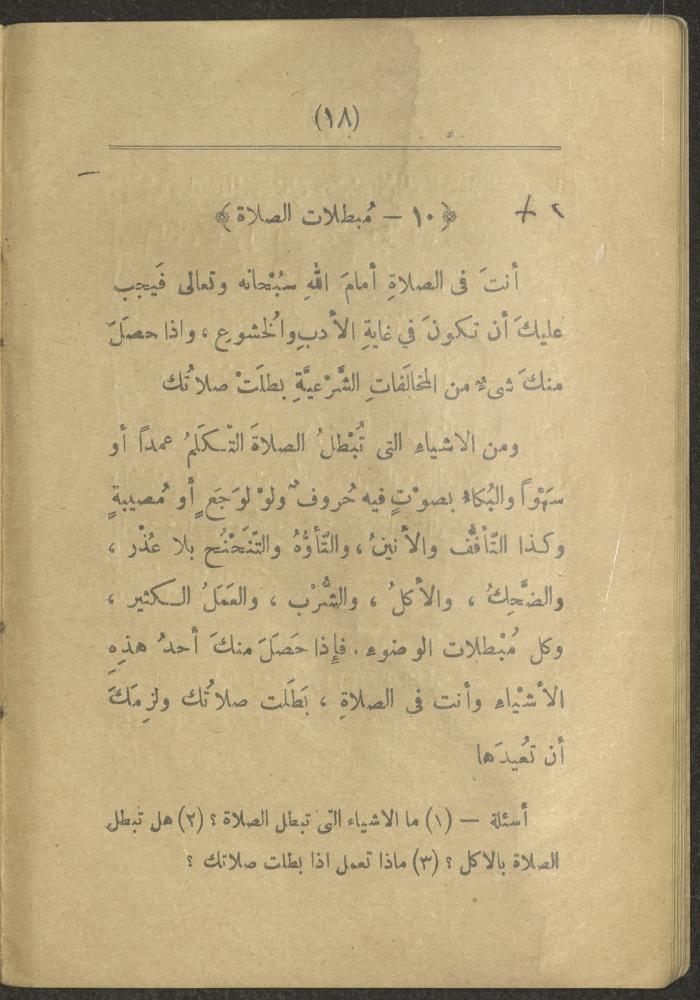 (١٨)
٢ +
﴿ ١٠ – مُبطلات الصلاة ﴾
أنتَ فى الصلاةِ أمامَ اللهِ سُبْحانه وتعالى فَيجب
عليكَ أن تكونَ في غايةِ الأدبِ والُخشوع ، واذا حصَلَ
منكَ شىءٌ من المخالَفاتِ الشَّرْعيَّةِ بطلَتْ صلاتُك
ومن الاشياءِ التى تُبْطلُ الصلاةَ التّكلّمُ عمداً أو
سَهْواً والبُكاءُ بصوْتٍ فيه حُروفٌ ولوْ لوَجَعٍ أو مُصيبةٍ
وكذا التّأفّف والأنينُ ، والتّأوُّهُ والتّنَحْنُح بلا عُذْر ،
والضَّحِكُ ، والأكلُ ، والشُّرْب ، والعَمَلُ الـكثير ،
وكل مُبْطلات الوضوء . فإِذا حَصَلَ منكَ أحدُ هذِهِ
الأشْياءِ وأنت فى الصلاةِ ، بَطَلَت صلاتُك ولزِمَكَ
أن تُعيدَها
أسئلة – (١) ما الاشياء التى تبطل الصلاة ؟ (٢) هل تبطل
الصلاة بالاكل ؟ (٣) ماذا تعمل اذا بطلت صلاتك ؟